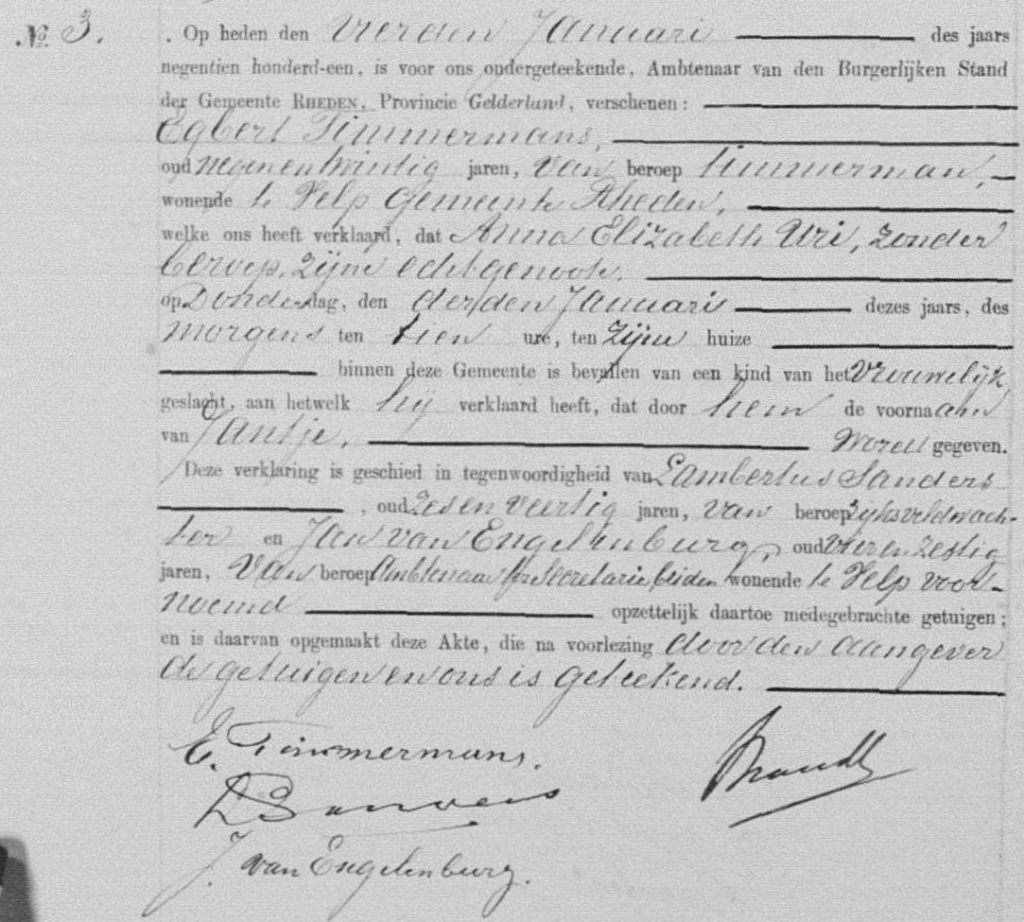 № 3. . Op heden den vierden Januari des jaars
negentien honderd-een, is voor ons ondergeteekende, Ambtenaar van den Burgerlijken Stand
der Gemeente RHEDEN, Provincie Gelderland, verschenen:
Egbert Timmermans,
oud negenentwintig jaren, van beroep timmerman,
wonende te Velp Gemeente Rheden,
welke ons heeft verklaard, dat Anna Elizabeth Uri, zonder
beroep, zijne echtgenoote,
op Donderdag, den derden Januari dezes jaars, des
morgens ten tien ure, ten zijne huize
binnen deze Gemeente is bevallen van een kind van het vrouwelijk
geslacht, aan hetwelk hij verklaard heeft, dat door hem de voornaam
van Jantje, wordt gegeven.
Deze verklaring is geschied in tegenwoordigheid van Lambertus Sanders
, oud zesenveertig jaren, van beroep rijksveldwach-
ter en Jan van Engelenburg, oud vierenzestig
jaren, van beroep Ambtenaar ter Secretarie, beiden wonende te Velp voor-
noemd opzettelijk daartoe medegebrachte getuigen;
en is daarvan opgemaakt deze Akte, die na voorlezing door den aangever
de getuigen en ons is geteekend.
E. Timmermans.
Brandt
L Sanders
J. van Engelenburg.